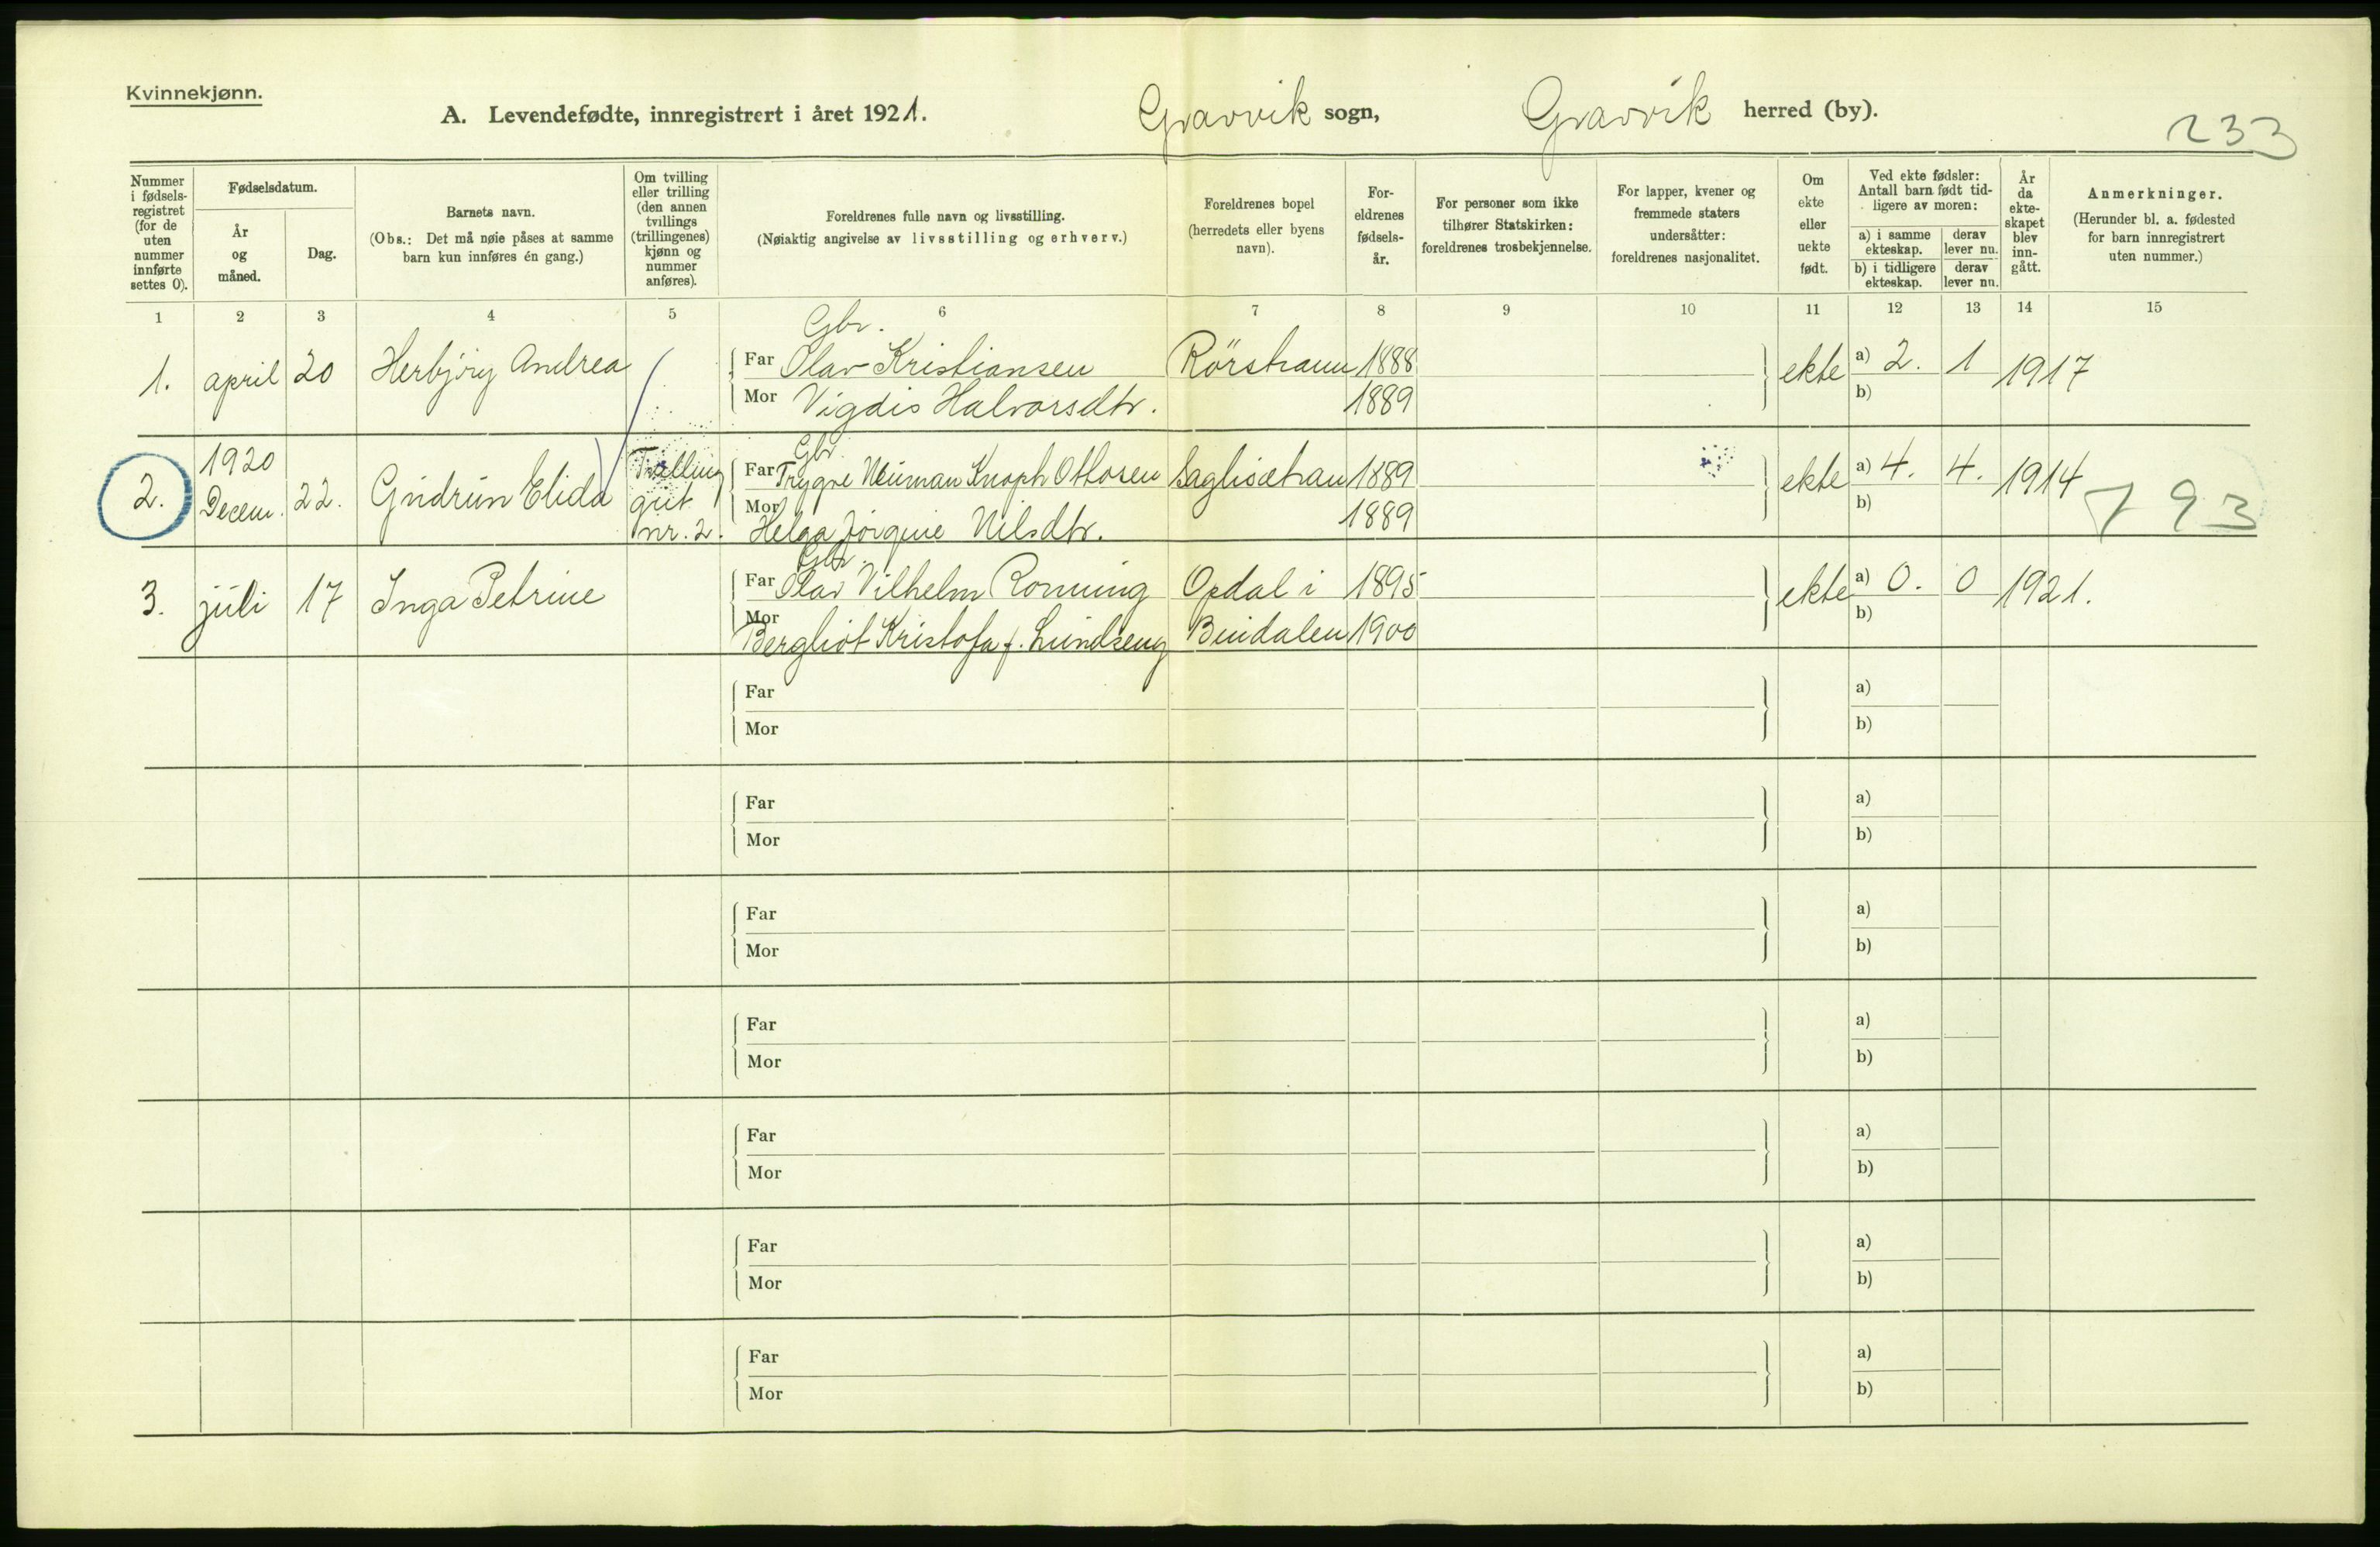 Kvinnekjønn.
A. Levendefødte, innregistrert i året 1921. Gravvik sogn, Gravvik herred (by).
233
Nummer i fødsels-registret (for de uten nummer innførte settes 0).
Fødselsdatum.
År og måned.
Dag.
Barnets navn.
(Obs.: Det må nøie påses at samme barn kun innføres én gang.)
Om tvilling eller trilling (den annen tvillings (trillingenes) kjønn og nummer anføres).
Foreldrenes fulle navn og livsstilling.
(Nøiaktig angivelse av livsstilling og erhverv.)
Foreldrenes bopel (herredets eller byens navn).
For-eldrenes fødsels-år.
For personer som ikke tilhører Statskirken: foreldrenes trosbekjennelse.
For lapper, kvener og fremmede staters undersåtter: foreldrenes nasjonalitet.
Om ekte eller uekte født.
Ved ekte fødsler: Antall barn født tid-ligere av moren:
a) i samme ekteskap.
derav lever nu.
b) i tidligere ekteskap.
derav lever nu.
År da ekte-skapet blev inn-gått.
Anmerkninger.
(Herunder bl. a. fødested for barn innregistrert uten nummer.)
1 2 3 4 5 6 7 8 9 10 11 12 13 14 15
Gbr.
1. april 20 Herbjörg Andrea Far Olav Kristiansen Rörstraum 1888 ekte a) 2. 1 1917
Mor Vigdis Halvorsdtr. 1889 b)
1920 Gbr.
2. Decem. 22. Gudrun Elida Tvilling Far Trygve Neuman Knoph Ottosen 1889 ekte a) 4. 4. 1914
gut Mor b) 793
nr. 2. Helga Jörgine Nilsdtr. 1889
Gbr.
3. juli 17 Inga Petrine Far Olav Vilhelm Ronning Opdal i 1895 ekte a) 0. 0 1921.
Mor b)
Bergliot Kristofa f. Lundseng Bindalen 1900
Far a)
Mor b)
Far a)
Mor b)
Far a)
Mor b)
Far a)
Mor b)
Far a)
Mor b)
Far a)
Mor b)
Far a)
Mor b)